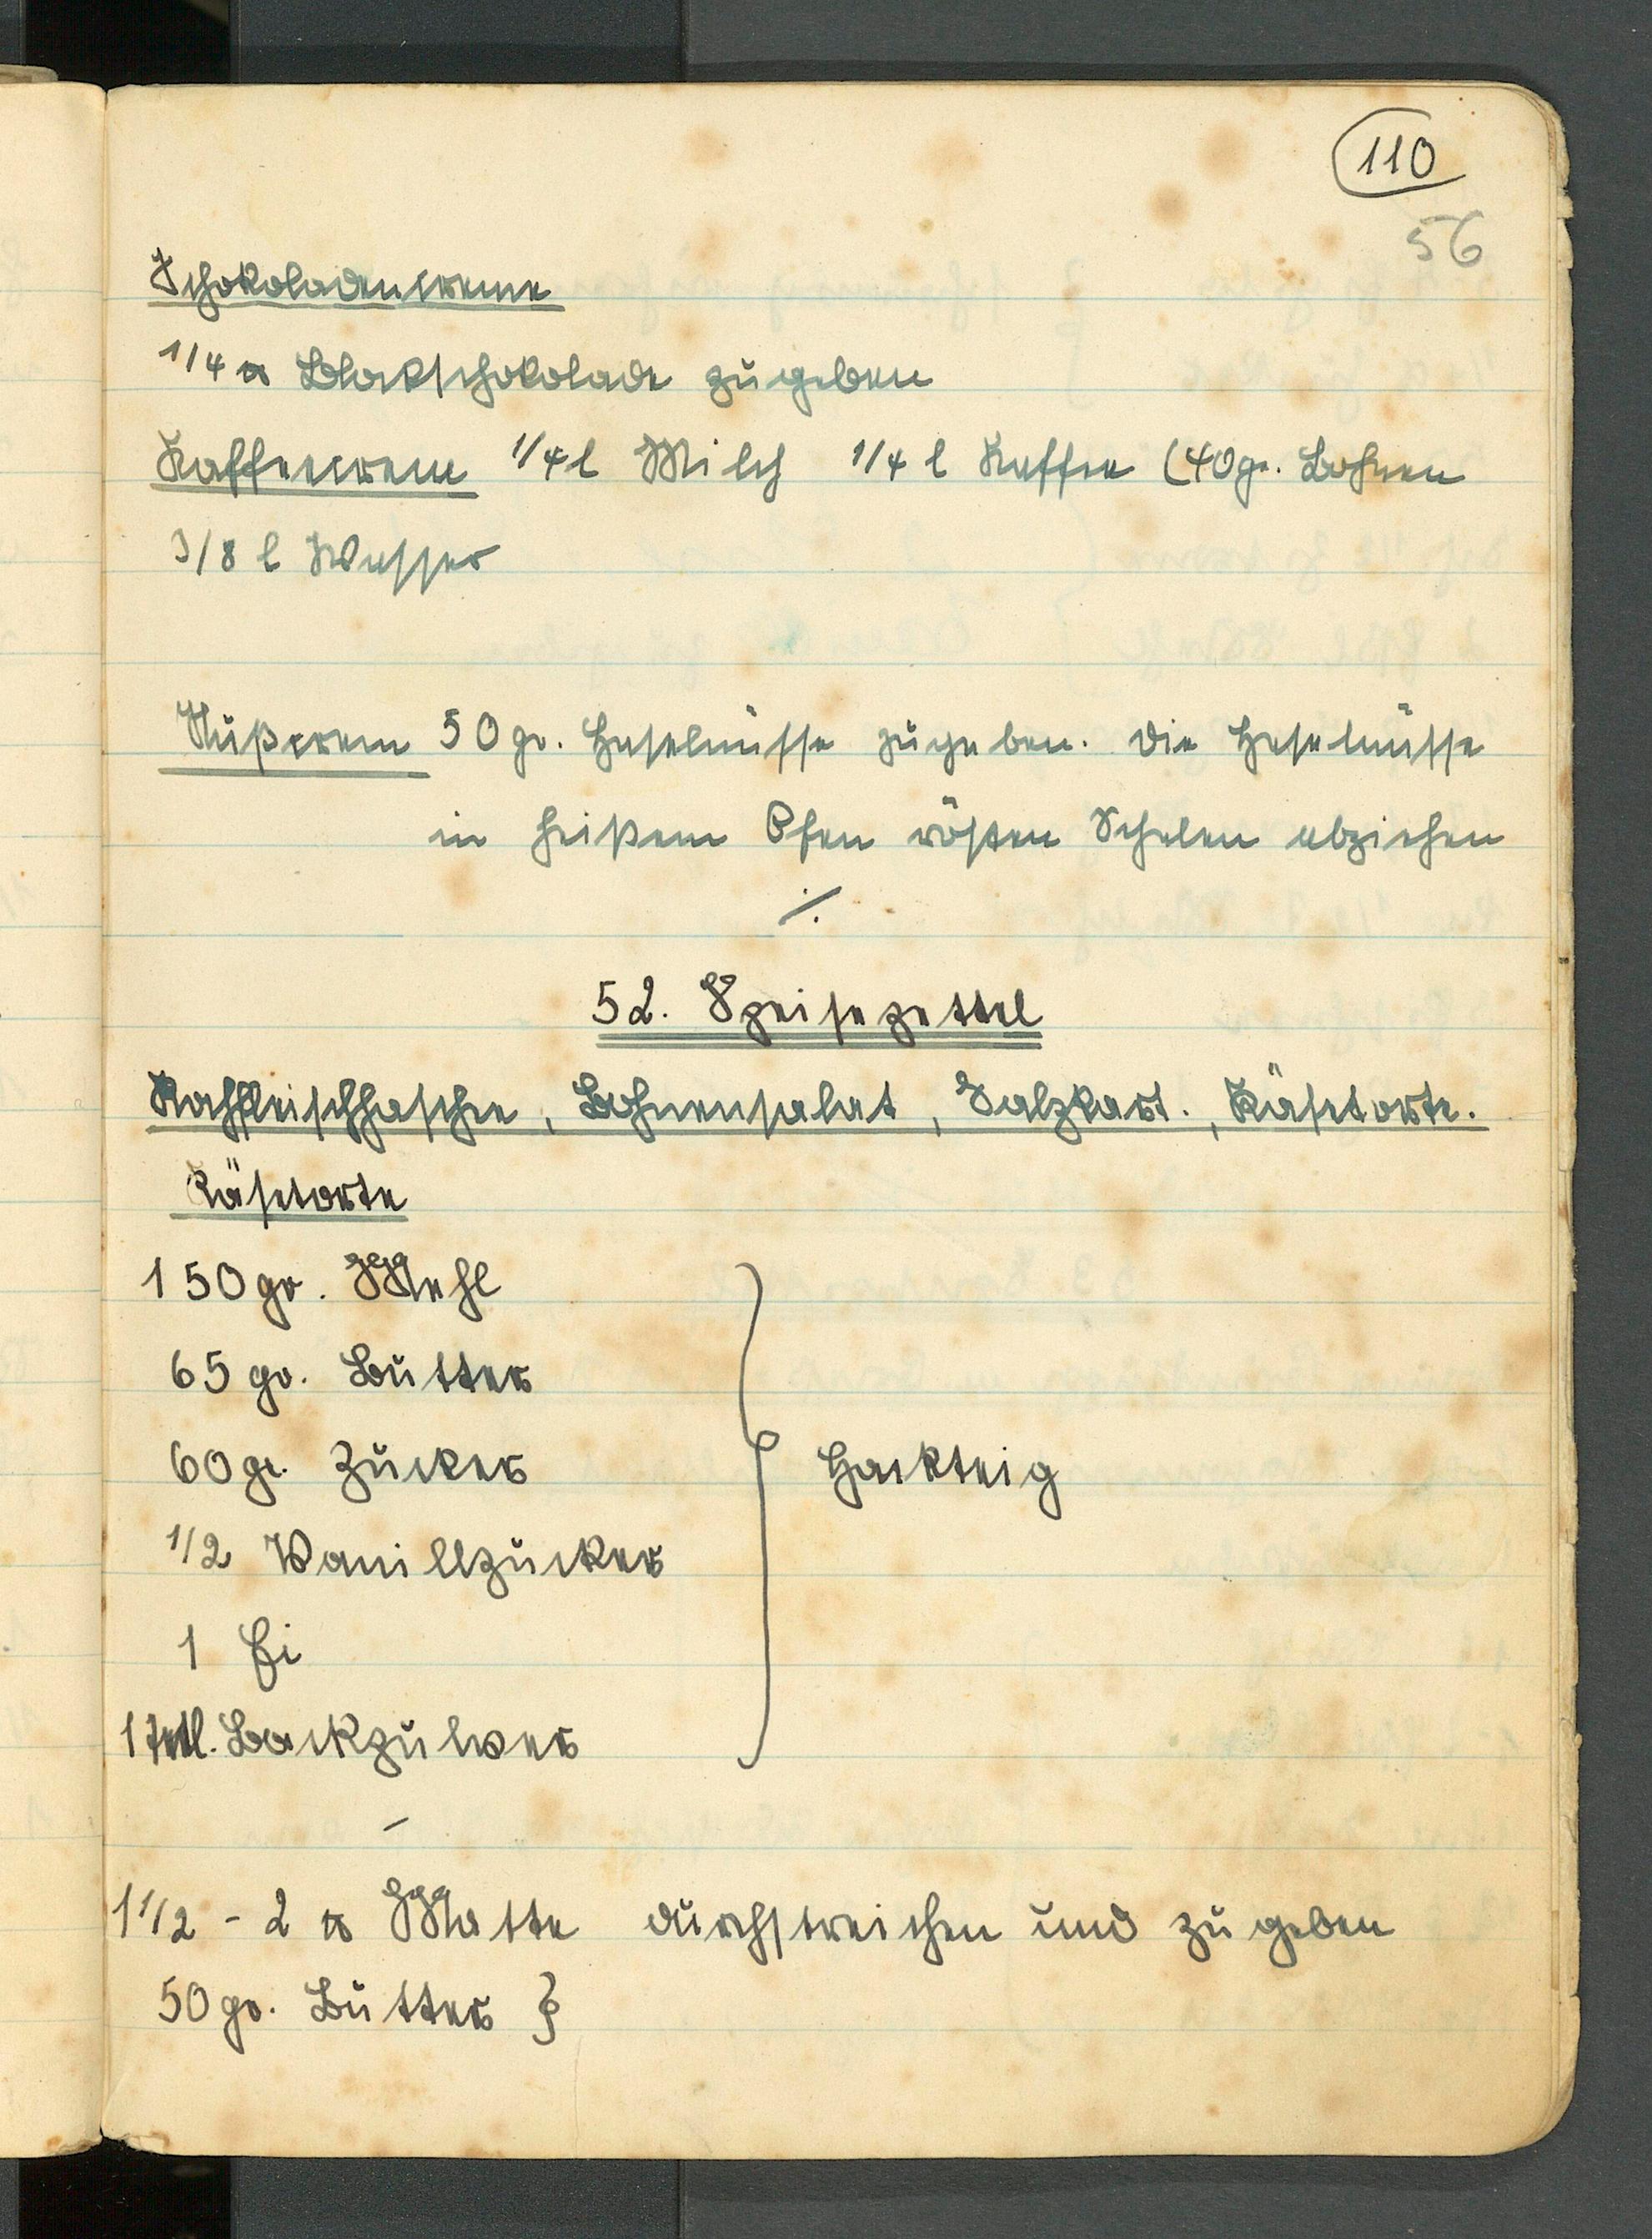 110
56
Schokoladencreme
1/4 ℔ Blockschokolade zugeben
Kaffeecrem 1/4 l Milch 1/4 l Kaffee (40 gr. Bohnen
3/8 l Wasser
Nußcrem 50 gr. Haselnüsse zugeben. Die Haselnüsse
in heißem Ofen rösten Schalen abziehen
⁒
52. Speisezettel
Kochfleischhaschee, Bohnensalat, Salzkart., Käsetorte.
Käsetorte
150 gr. Mehl
65 gr. Butter
60 gr. Zucker } Hackteig
1/2 Vanillzucker
1 Ei
1 Teel. Backpulver
–
1 1/2 - 2 ℔ Matte durchstreichen und zugeben
50 gr. Butter }